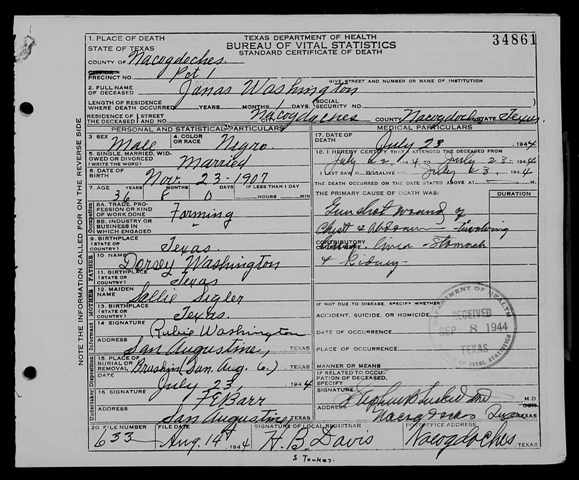 34861
TEXAS DEPARTMENT OF HEALTH
BUREAU OF VITAL STATISTICS
STANDARD CERTIFICATE OF DEATH
1. PLACE OF DEATH
STATE OF TEXAS
COUNTY OF Nacogdoches
PRECINCT NO. Pct 1
GIVE STREET AND NUMBER OR NAME OF INSTITUTION
2. FULL NAME OF DECEASED Janas Washington
LENGTH OF RESIDENCE WHERE DEATH OCCURRED YEARS MONTHS DAYS (SOCIAL SECURITY NO.
RESIDENCE OF THE DECEASED STREET AND NO. Nacogdoches COUNTY Nacogdoches STATE Texas
PERSONAL AND STATISTICAL PARTICULARS
3. SEX Male
4. COLOR OR RACE Negro
5. SINGLE, MARRIED, WIDOWED OR DIVORCED (WRITE THE WORD) Married
6. DATE OF BIRTH Nov. 23-1907
7. AGE 36 YEARS 8 MONTHS 0 DAYS IF LESS THAN 1 DAY HOURS MIN
8A. TRADE, PROFESSION OR KIND OF WORK DONE Farming
8B. INDUSTRY OR BUSINESS IN WHICH ENGAGED "
9. BIRTHPLACE (STATE OR COUNTRY) Texas
10. NAME Dorsey Washington
11. BIRTHPLACE (STATE OR COUNTRY) Texas
12. MAIDEN NAME Sallie Sigler
13. BIRTHPLACE (STATE OR COUNTRY) Texas
14. SIGNATURE Rubie Washington
ADDRESS San Augustine, TEXAS
15. PLACE OF BURIAL OR REMOVAL San Aug. Co.) TEXAS
(DATE) July 23, 1944
16. SIGNATURE F E Barr
ADDRESS San Augustine TEXAS
MEDICAL PARTICULARS
17. DATE OF DEATH July 23, 1944
18. I HEREBY CERTIFY THAT I ATTENDED THE DECEASED FROM
July 22, 1944 TO July 23 1944
I LAST SAW H ALIVE ON July 23, 1944
THE DEATH OCCURRED ON THE DATE STATED ABOVE AT M.
THE PRIMARY CAUSE OF DEATH WAS: DURATION
Gun shot wound of
Chest & abdomen - involving
CONTRIBUTORY
Liver - Stomach
& Kidney
IF NOT DUE TO DISEASE, SPECIFY WHETHER:
ACCIDENT, SUICIDE, OR HOMICIDE
DATE OF OCCURRENCE
PLACE OF OCCURRENCE
MANNER OR MEANS
IF RELATED TO OCCUPATION OF DECEASED, SPECIFY
SIGNATURE M.D.
ADDRESS Nacogdoches TEXAS
DEPARTMENT OF HEALTH
RECEIVED
SEP 8 1944
TEXAS
OF VITAL STATISTICS
20. FILE NUMBER 633
FILE DATE Aug. 14th 1944
SIGNATURE OF LOCAL REGISTRAR H. B. Davis
POST OFFICE ADDRESS Nacogdoches TEXAS
NOTE THE INFORMATION CALLED FOR ON THE REVERSE SIDE